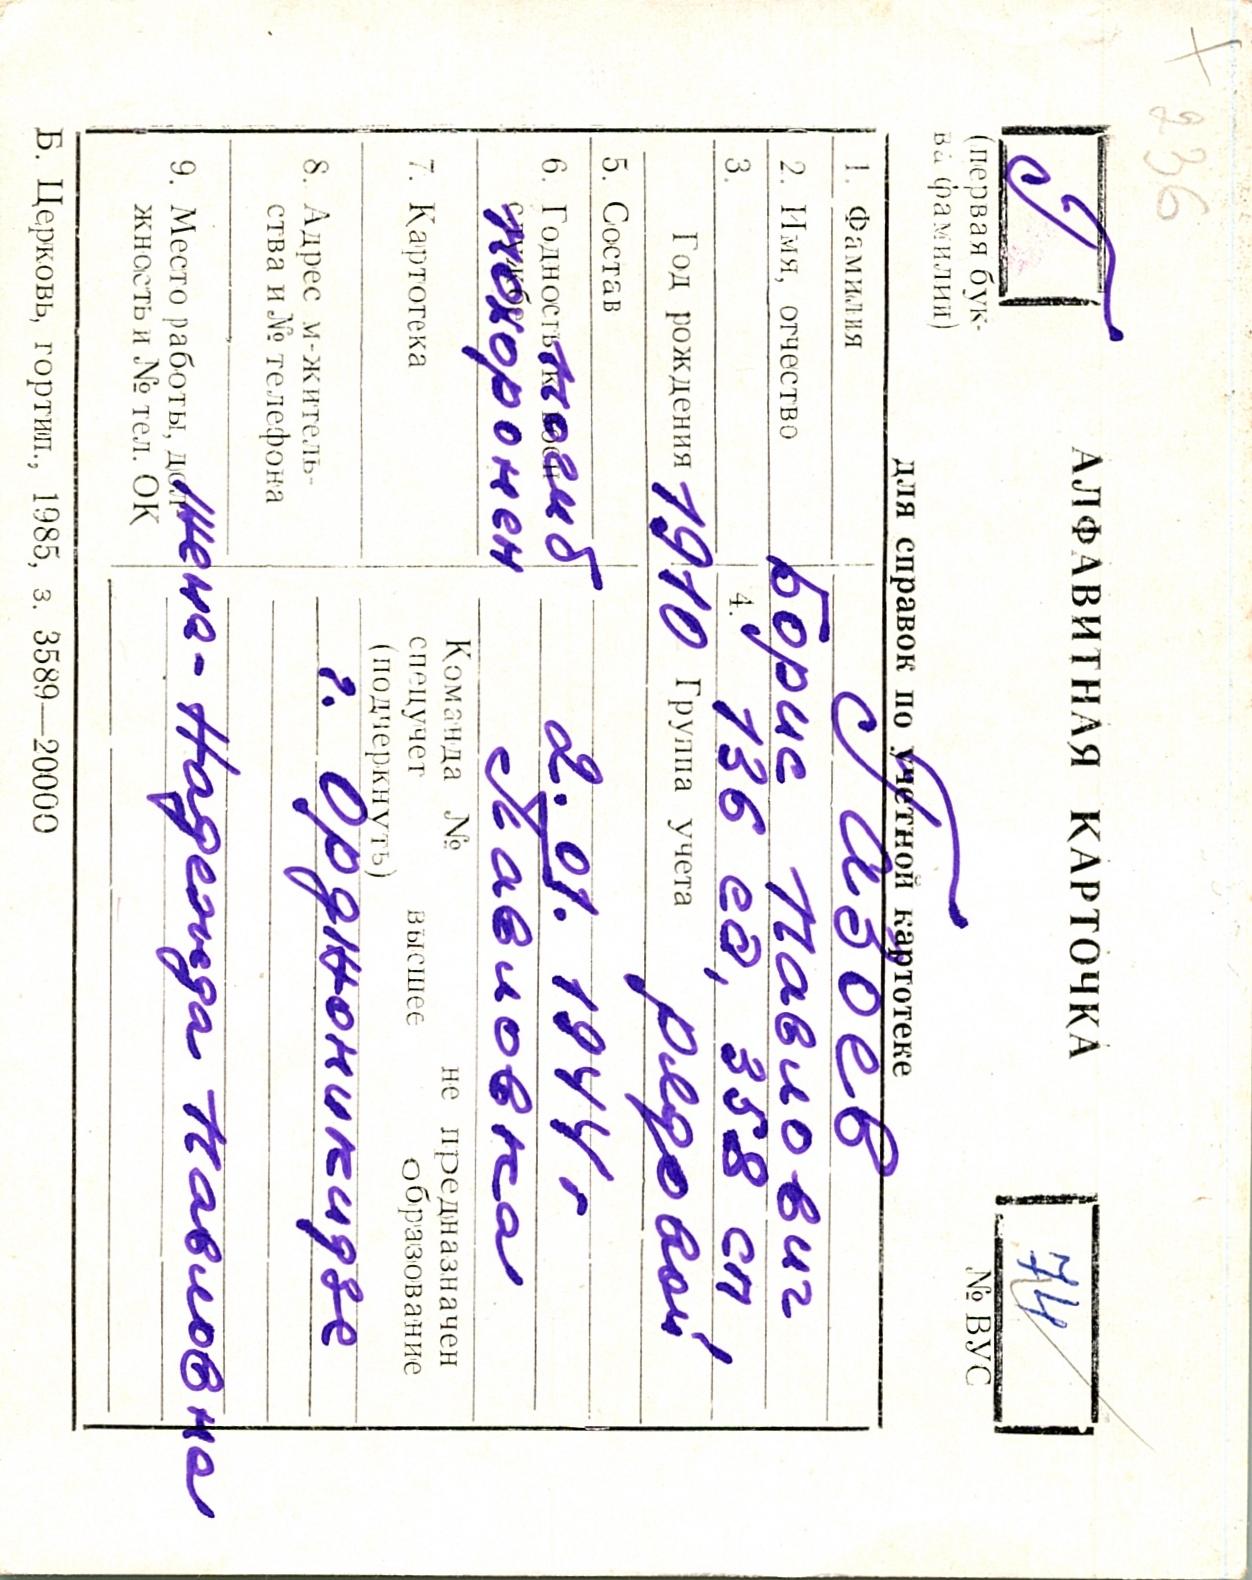 × 236
Г
(первая бук-
ва фамилии)
АЛФАВИТНАЯ КАРТОЧКА
для справок по учетной картотеке
74
№ ВУС
1. Фамилия Габоев
2. Имя, отчество Борис Павлович
3. 4. 136 сд, 358 сп
Год рождения 1910 Группа учета рядовой
5. Состав
6. Годность к вой погиб 2.01.1944 г
службе похоронен Павловка
7. Картотека Команда № не предназначен
спецучет высшее образование
(подчеркнуть)
8. Адрес м-житель-
ства и № телефона г. Орджоникидзе
9. Место работы, дол
жность и № тел. ОК жена - Надежда Павловна
Б. Церковь, гортип., 1985, з. 3589—20000